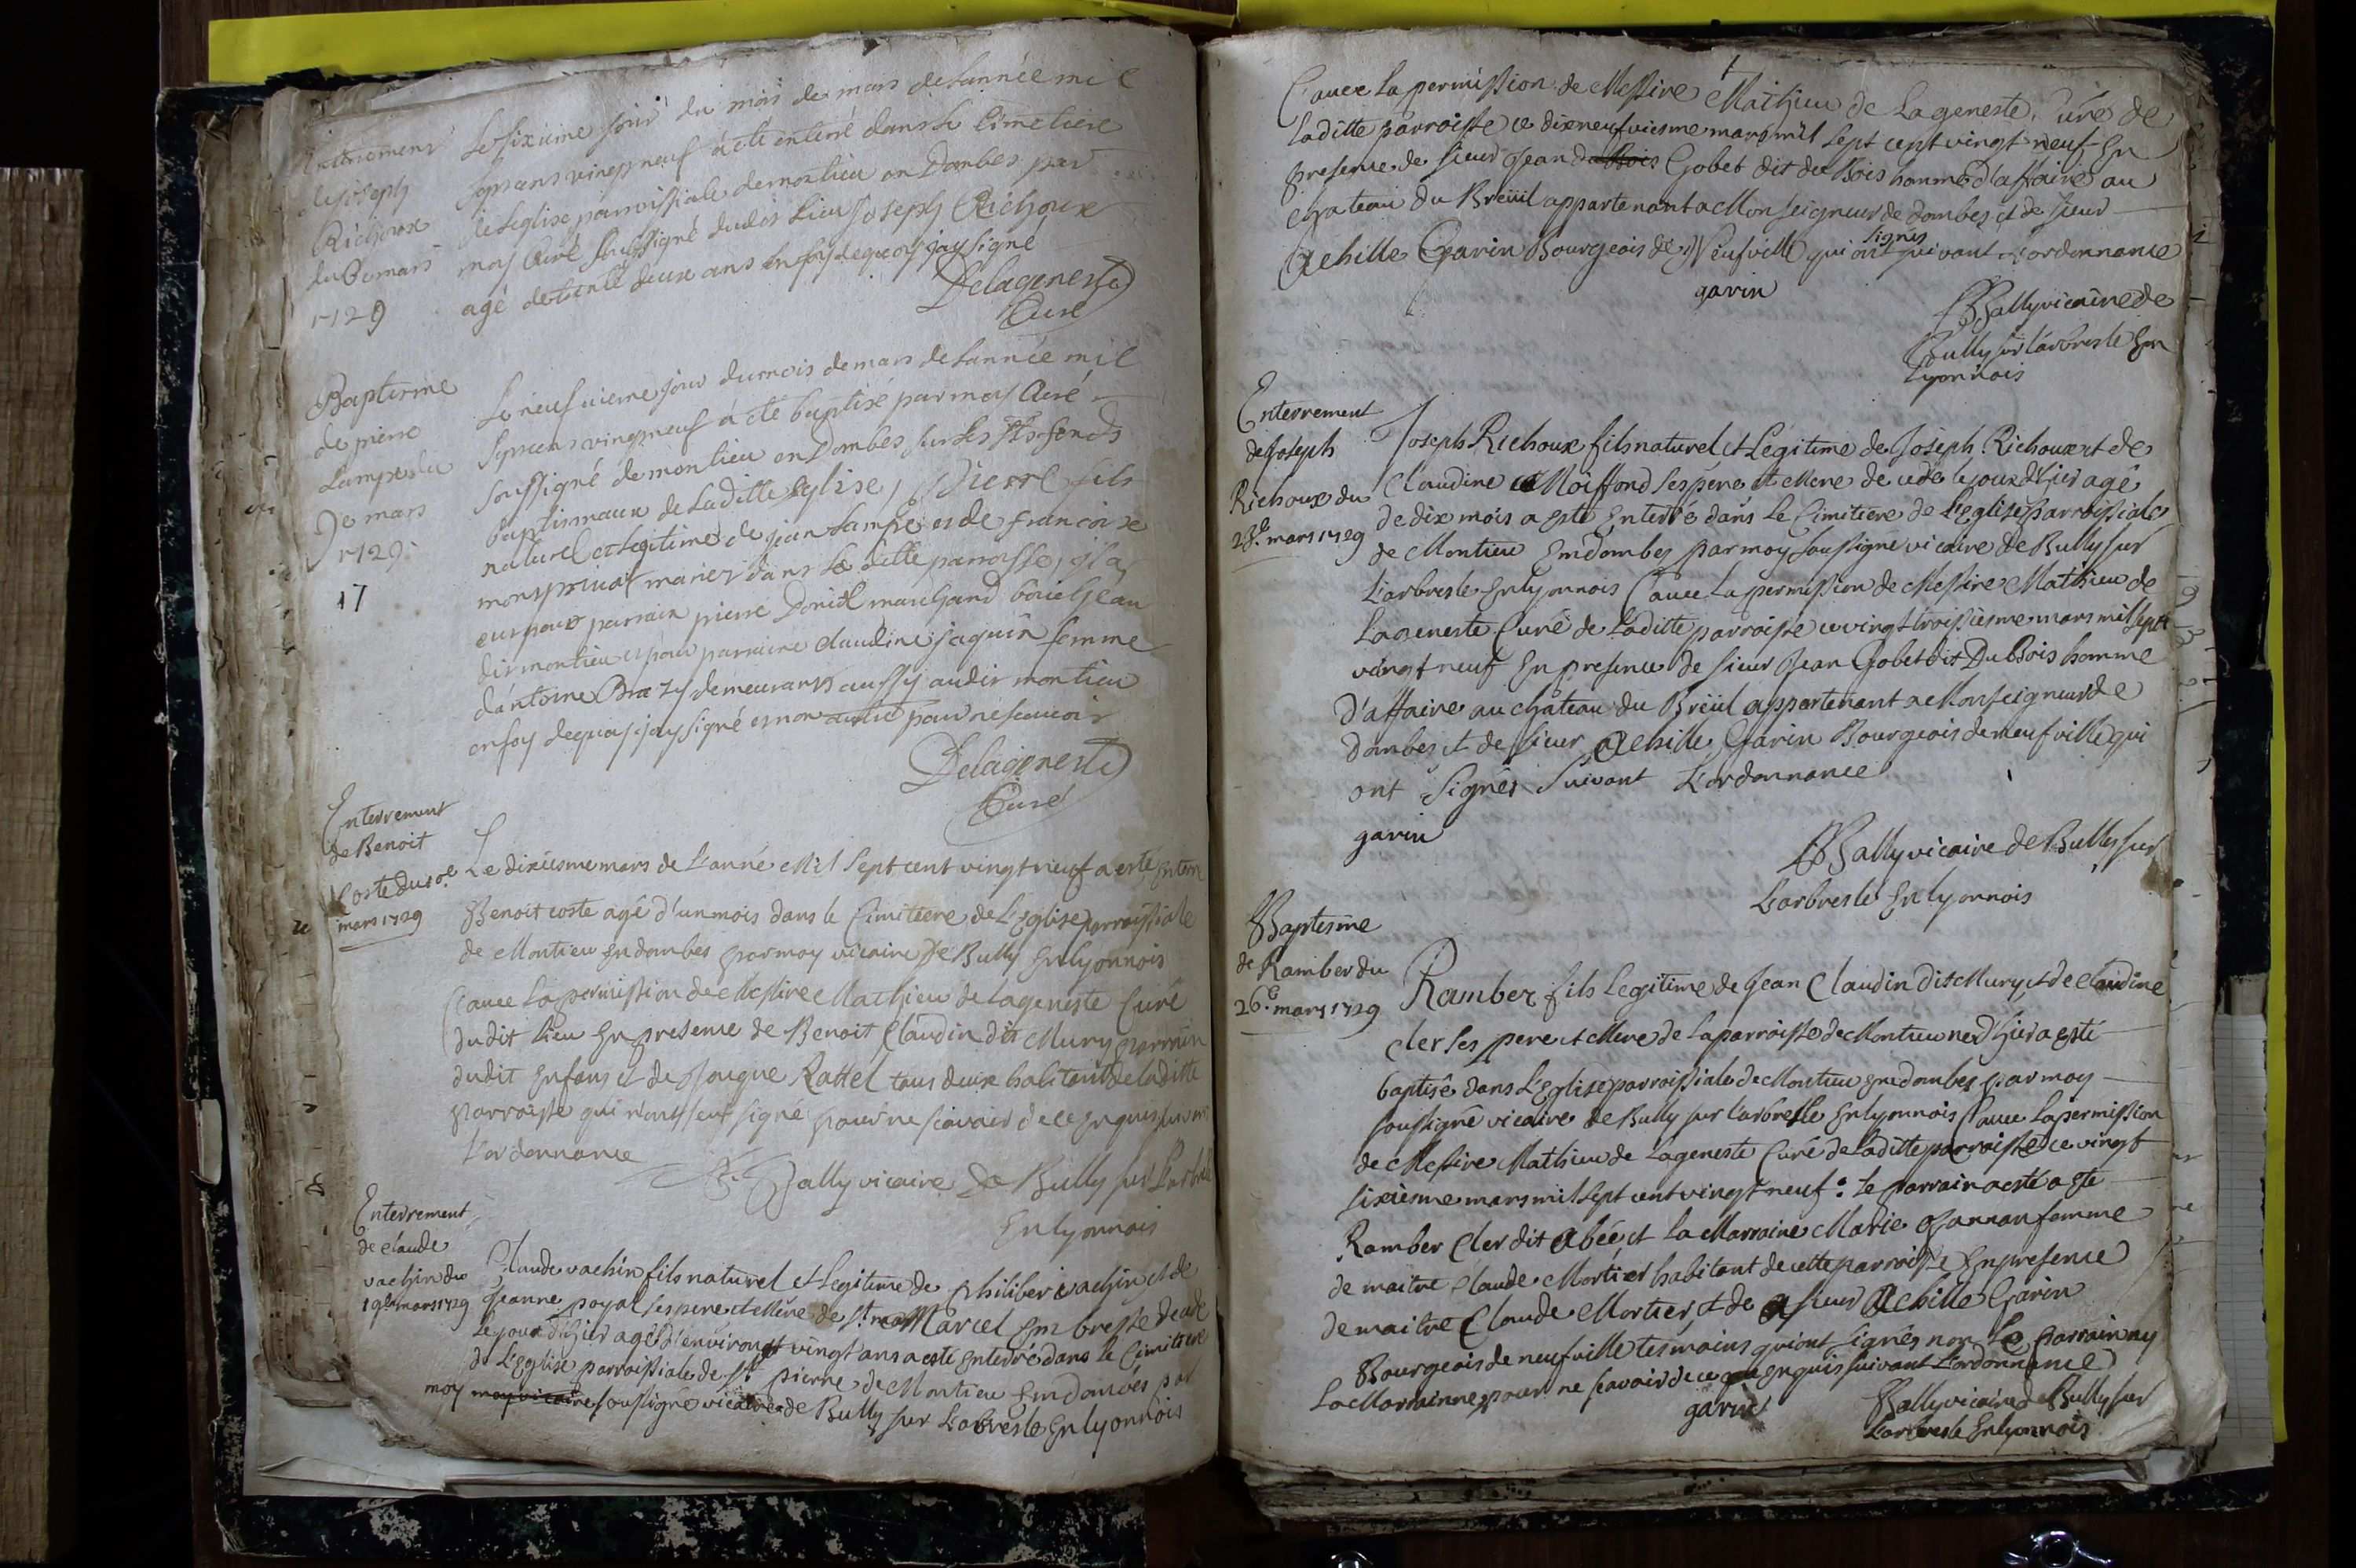 Enterrement
de joseph
Richoux
du 6e mars
1729
Le sixième jour du mois de mars de lannée mil
septcens vingtneuf à eté enterré dans le cimetiere
de leglise parroissiale de montieu en Dombes par
moy Curé soussigné dudit lieu Joseph Richoux
agé de trente deux ans en foy de quoy jay signé
Delageneste
Curé
Baptisme
de pierre
Lampe du
9e mars
1729.
17
Le neufuieme jour du mois de mars de lannée mil
septcens vingtneuf à eté baptisé par moy Curé
soussigné de montieu en Dombes sur les fonds
baptismaux de laditte Eglise, Pierre fils
naturel et legitime de jean Lampe et de francoise
mariez dans la ditte parroisse, il a
eu pour parrain pierre marchand
dit montieu et pour marraine claudine jaquin femme
dantoine demeurant aussy audit montieu
en foy dequoy jay signé et non autre pour ne scavoir
Delageneste
Curé
Enterrement
de Benoit
Coste du 10e
mars 1729
Le dixiesme mars de L'anné Mil Sept cent vingt neuf a esté Enterré
Benoit coste agé d'un mois dans le Cimitiere de L'Eglise parroissiale
de Montieu En dombes par moy vicaire de Bully En lyonnois
(avec La permission de Messire Mathieu de Lageneste Curé
dudit Lieu En presence de Benoit Claudin dit Mury parrain
dudit Enfant et de Rattel tous deux habitants de laditte
parroisse qui n'ont signé pour ne scavoir de ce Enquis
L'ordonnance
Bally vicaire de Bully sur Larbresle
En lyonnois
Enterrement
de claude
vachin du
19e mars 1729
Claude vachin fils naturel et Legitime de philibert vachin et de
Jeanne poyal ses pere et Mere de St. Marcel En bresse decedé
Le jour d'hier agé d'environ vingt ans a esté Enterré dans le Cimitiere
de L'Eglise parroissiale de St. pierre de Montieu En dombes par
moy moy vicaire soussigné vicaire de Bully sur Larbresle En lyonnois
(avec La permission de Messire Mathieu de Lageneste, Curé de
laditte parroisse ce dixneufviesme mars mil sept cent vingt neuf En
presence de sieur Jean du Bois Gobet dit du Bois homme d'affaire au
chateau du Breüil appartenant a Monseigneur de dombes et de sieur
Achille Garin Bourgeois de Neufville qui ont signés suivant L'ordonnance
garin
Bally vicaire de
Bully sur Larbresle En
Lyonnois
Enterrement
de Joseph
Richoux du
23e. mars 1729
Joseph Richoux fils naturel et Legitime de Joseph Richoux et de
Claudine Moiffond ses pere et Mere decedé le jour d'hier agé
de dix mois a esté Enterré dans Le Cimitiere de L'Eglise parroissiale
de Montieu En dombes par moy soussigné vicaire de Bully sur
L'arbresle En lyonnois (avec La permission de Messire Mathieu de
Lageneste Curé de Laditte parroisse ce vingt troisiesme mars mil sept
vingt neuf En presence de sieur Jean Gobet dit Du Bois homme
D'affaire au château du Breüil appartenant a Monseigneur de
dombes et de sieur Achille Garin Bourgeois de neufville qui
ont signés suivant L'ordonnance
garin
Bally vicaire de Bully sur
Larbresle En lyonnois
Baptesme
de Ramber du
26e. mars 1729
Ramber fils Legitime de Jean Claudin dit Mury, et de Claudine
Cler ses pere et Mere de La parroisse de Montieu né d'hier a esté
baptisé dans L'Eglise parroissiale de Montieu En dombes par moy
soussigné vicaire de Bully sur L'arbresle En lyonnois (avec La permission
de Messire Mathieu de Lageneste Curé de Laditte parroisse ce vingt
sixiesme mars mil sept cent vingt neuf. Le parrain a esté a esté
Ramber Cler dit Abéé et La Marraine Marie Jannan femme
de maitre Claude Mortier habitant de cette parroisse En presence
de maitre Claude Mortier, et de sieur Achille Garin
Bourgeois de neufville tesmoins qui ont signés non Le parrain ny
La Marrainne pour ne scavoir de ce Enquis suivant L'ordonnance
garin
Bally vicaire de Bully sur
Larbresle En lyonnois